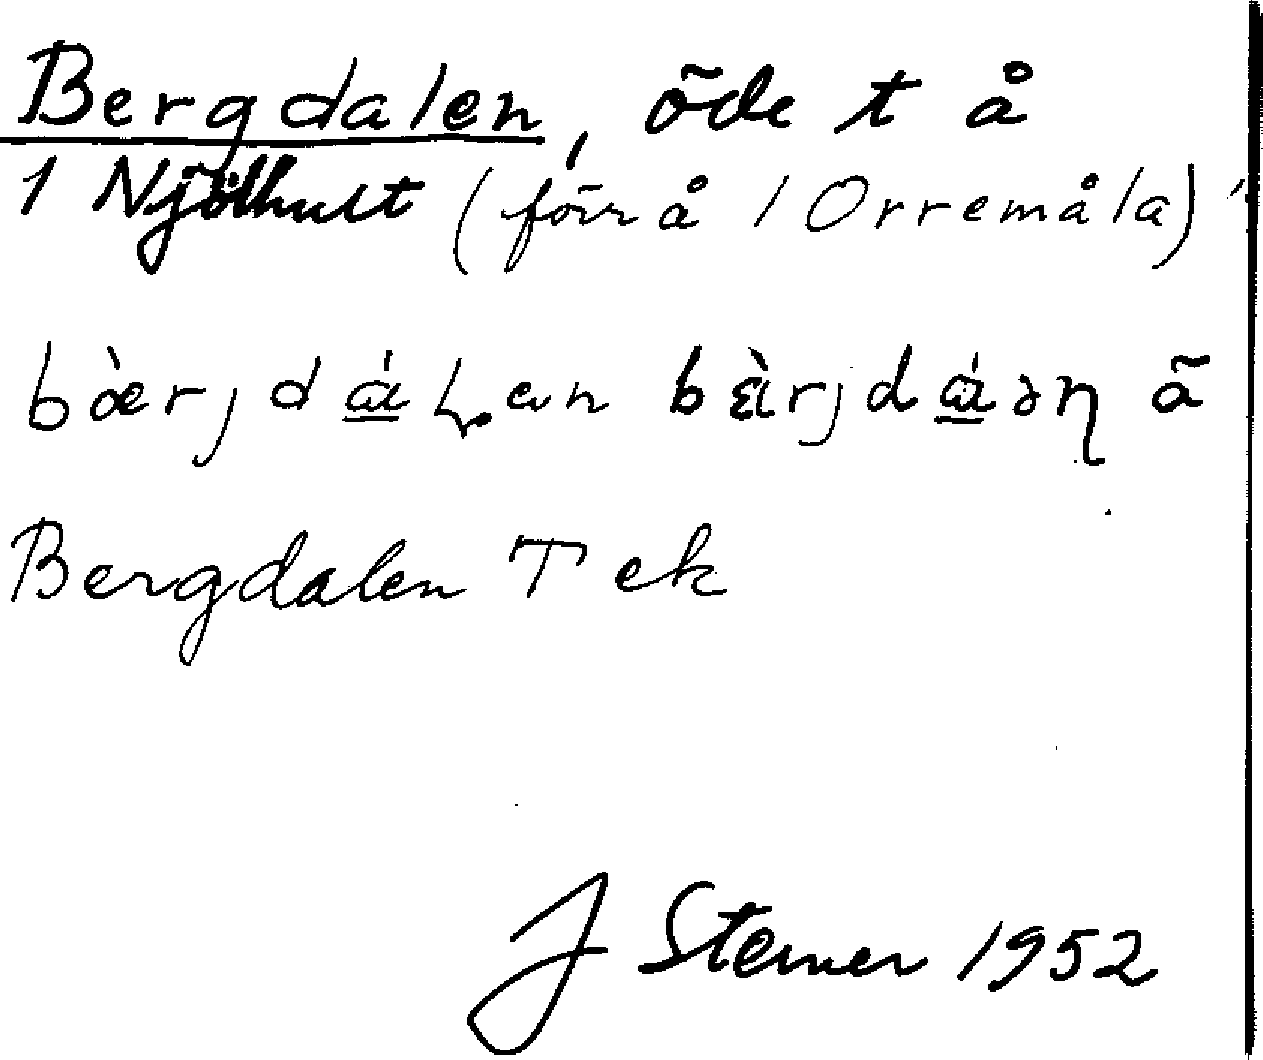 Bergdalen, öde t å
1 Njölhult (förr å 1 Orremåla)
bæ̀rjdáḷen bæ̀rjdáən ã
Bergdalen T ek
J Sterner 1952